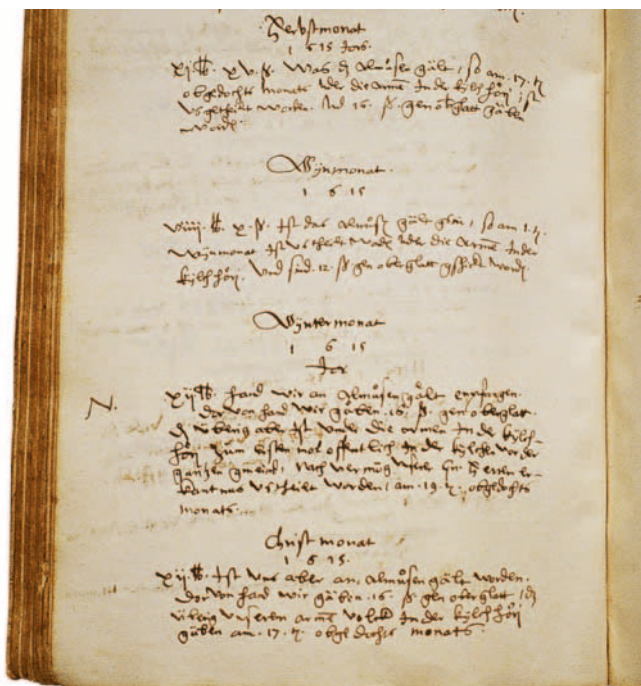 Herbstmonat
1 6 15 Jors.
xj ℔. xv. ß. Was dz Almůsen gält, so am .17. tag
obgedachts monats under die Armen In der kylchhöri
usgetheilt worden. Und 16. ß. gen obglatt gäben
worden.
Wynmonat.
1 6 15
viiij ℔. x. ß. Ist das Almůsen gält gsin, so am 1. tag
Wynmonat Ist ustheilt worden under die Armen In der
kylchhöri. Und sind .12. ß gen oberglatt gschickt worden.
Wyntermonat
1 6 15
Jor
N.
xij ℔. Hand wir an Almůsen gält enpfangen.
dorvon hand wir gäben .16. ß. gen oberglatt.
dz überig aber Ist under die armen In der kylch-
höri zum ersten mol offentlich In der kylchen vor der
gantzen gmeind, nach vermög unser Gn. Herren er-
kantnus ustheilt worden, am .19. tag. obgedachts
monats.
Christmonat
1 6 15.
xij ℔. Ist uns aber an Almůsen gält worden.
dorvon hand wir gäben .16. ß gen oberglatt, dz
überig unseren armen In der kylchhöri
gäben am .17. tag obgedachts monats